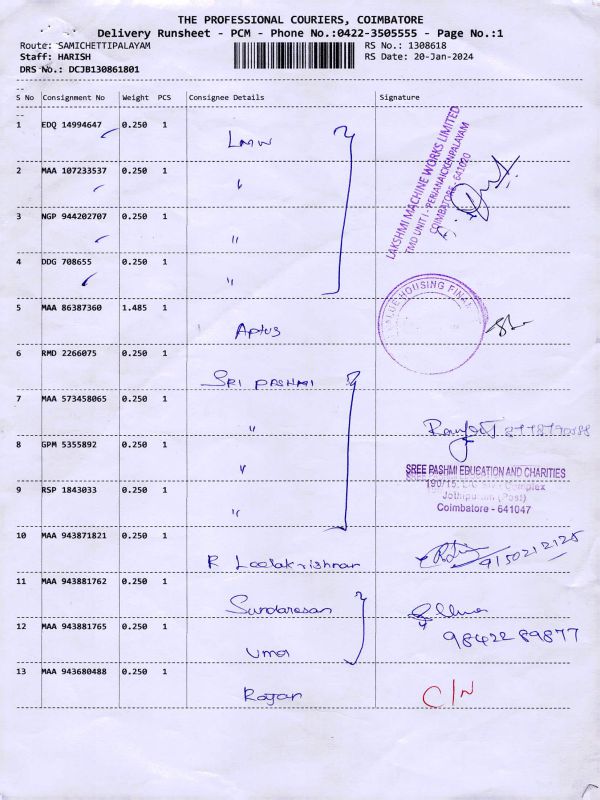 THE PROFESSIONAL COURIERS, COIMBATORE
Delivery Runsheet - PCM - Phone No.:0422-3505555 - Page No.:1
Route: SAMICHETTIPALAYAM RS No.: 1308618
Staff: HARISH RS Date: 20-Jan-2024
DRS No.: DCJB130861801
S No Consignment No Weight PCS Consignee Details Signature
1 EDQ 14994647 0.250 1 LMW
LAKSHMI MACHINE WORKS LIMITED
TMD UNIT I - PERIANAICKENPALAYAM
COIMBATORE - 641020
2 MAA 107233537 0.250 1 "
3 NGP 944202707 0.250 1 "
4 DDG 708655 0.250 1 "
5 MAA 86387360 1.485 1 Aptus
HOUSING FINAN
6 RMD 2266075 0.250 1 SRI PASHMI
7 MAA 573458065 0.250 1 "
8 GPM 5355892 0.250 1 "
SREE PASHMI EDUCATION AND CHARITIES
9 RSP 1843033 0.250 1 "
(Post)
Coimbatore - 641047
10 MAA 943871821 0.250 1 R Leelakrishnan
9150212125
11 MAA 943881762 0.250 1 Sundaresan
12 MAA 943881765 0.250 1 Uma
9842289877
13 MAA 943680488 0.250 1 Rajan C/N